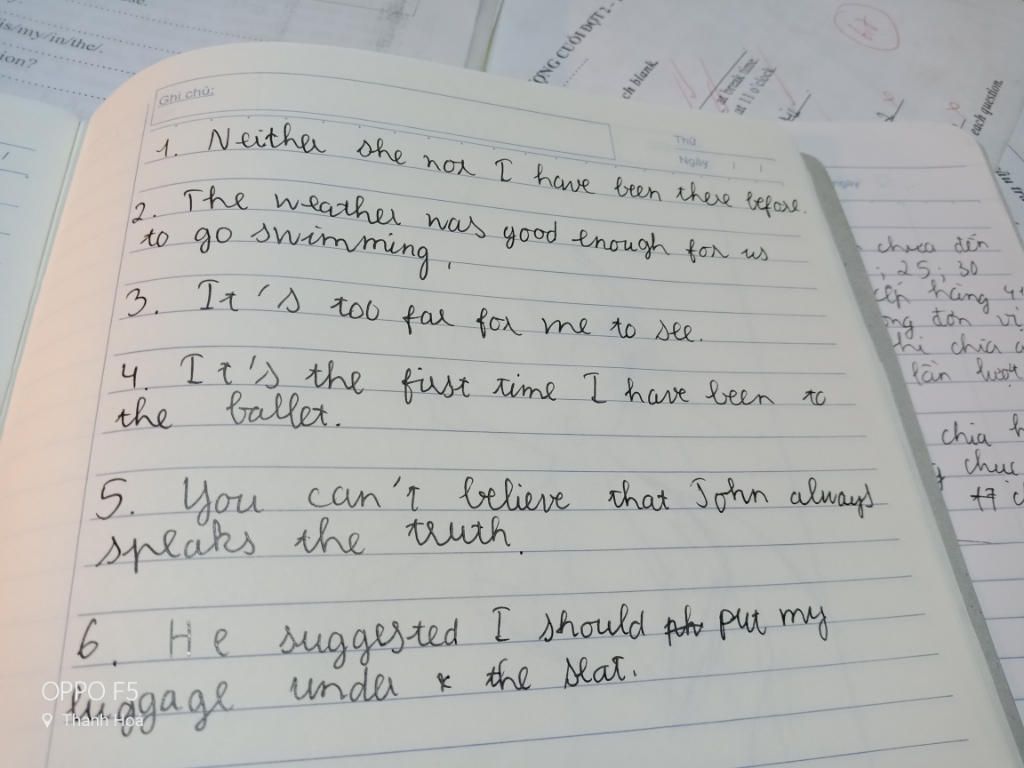 is/my/in/the/.
ion?
ỌNG CUỐI ĐỢT 2 -
ch blank.
at break time
at 11 o'clock
each question.
Ghi chú:
Thứ
Ngày
1. Neither she nor I have been there before.
2. The weather was good enough for us
to go swimming.
3. It's too far for me to see.
4. It's the first time I have been to
the ballet.
5. You can't believe that John always
speaks the truth.
6. He suggested I should put my
luggage under the seat.
chưa đến
; 25; 30
xếp hàng 4
ng đơn vị
hi chia
lần lượt
chia h
chục
OPPO F5
Thanh Hoa